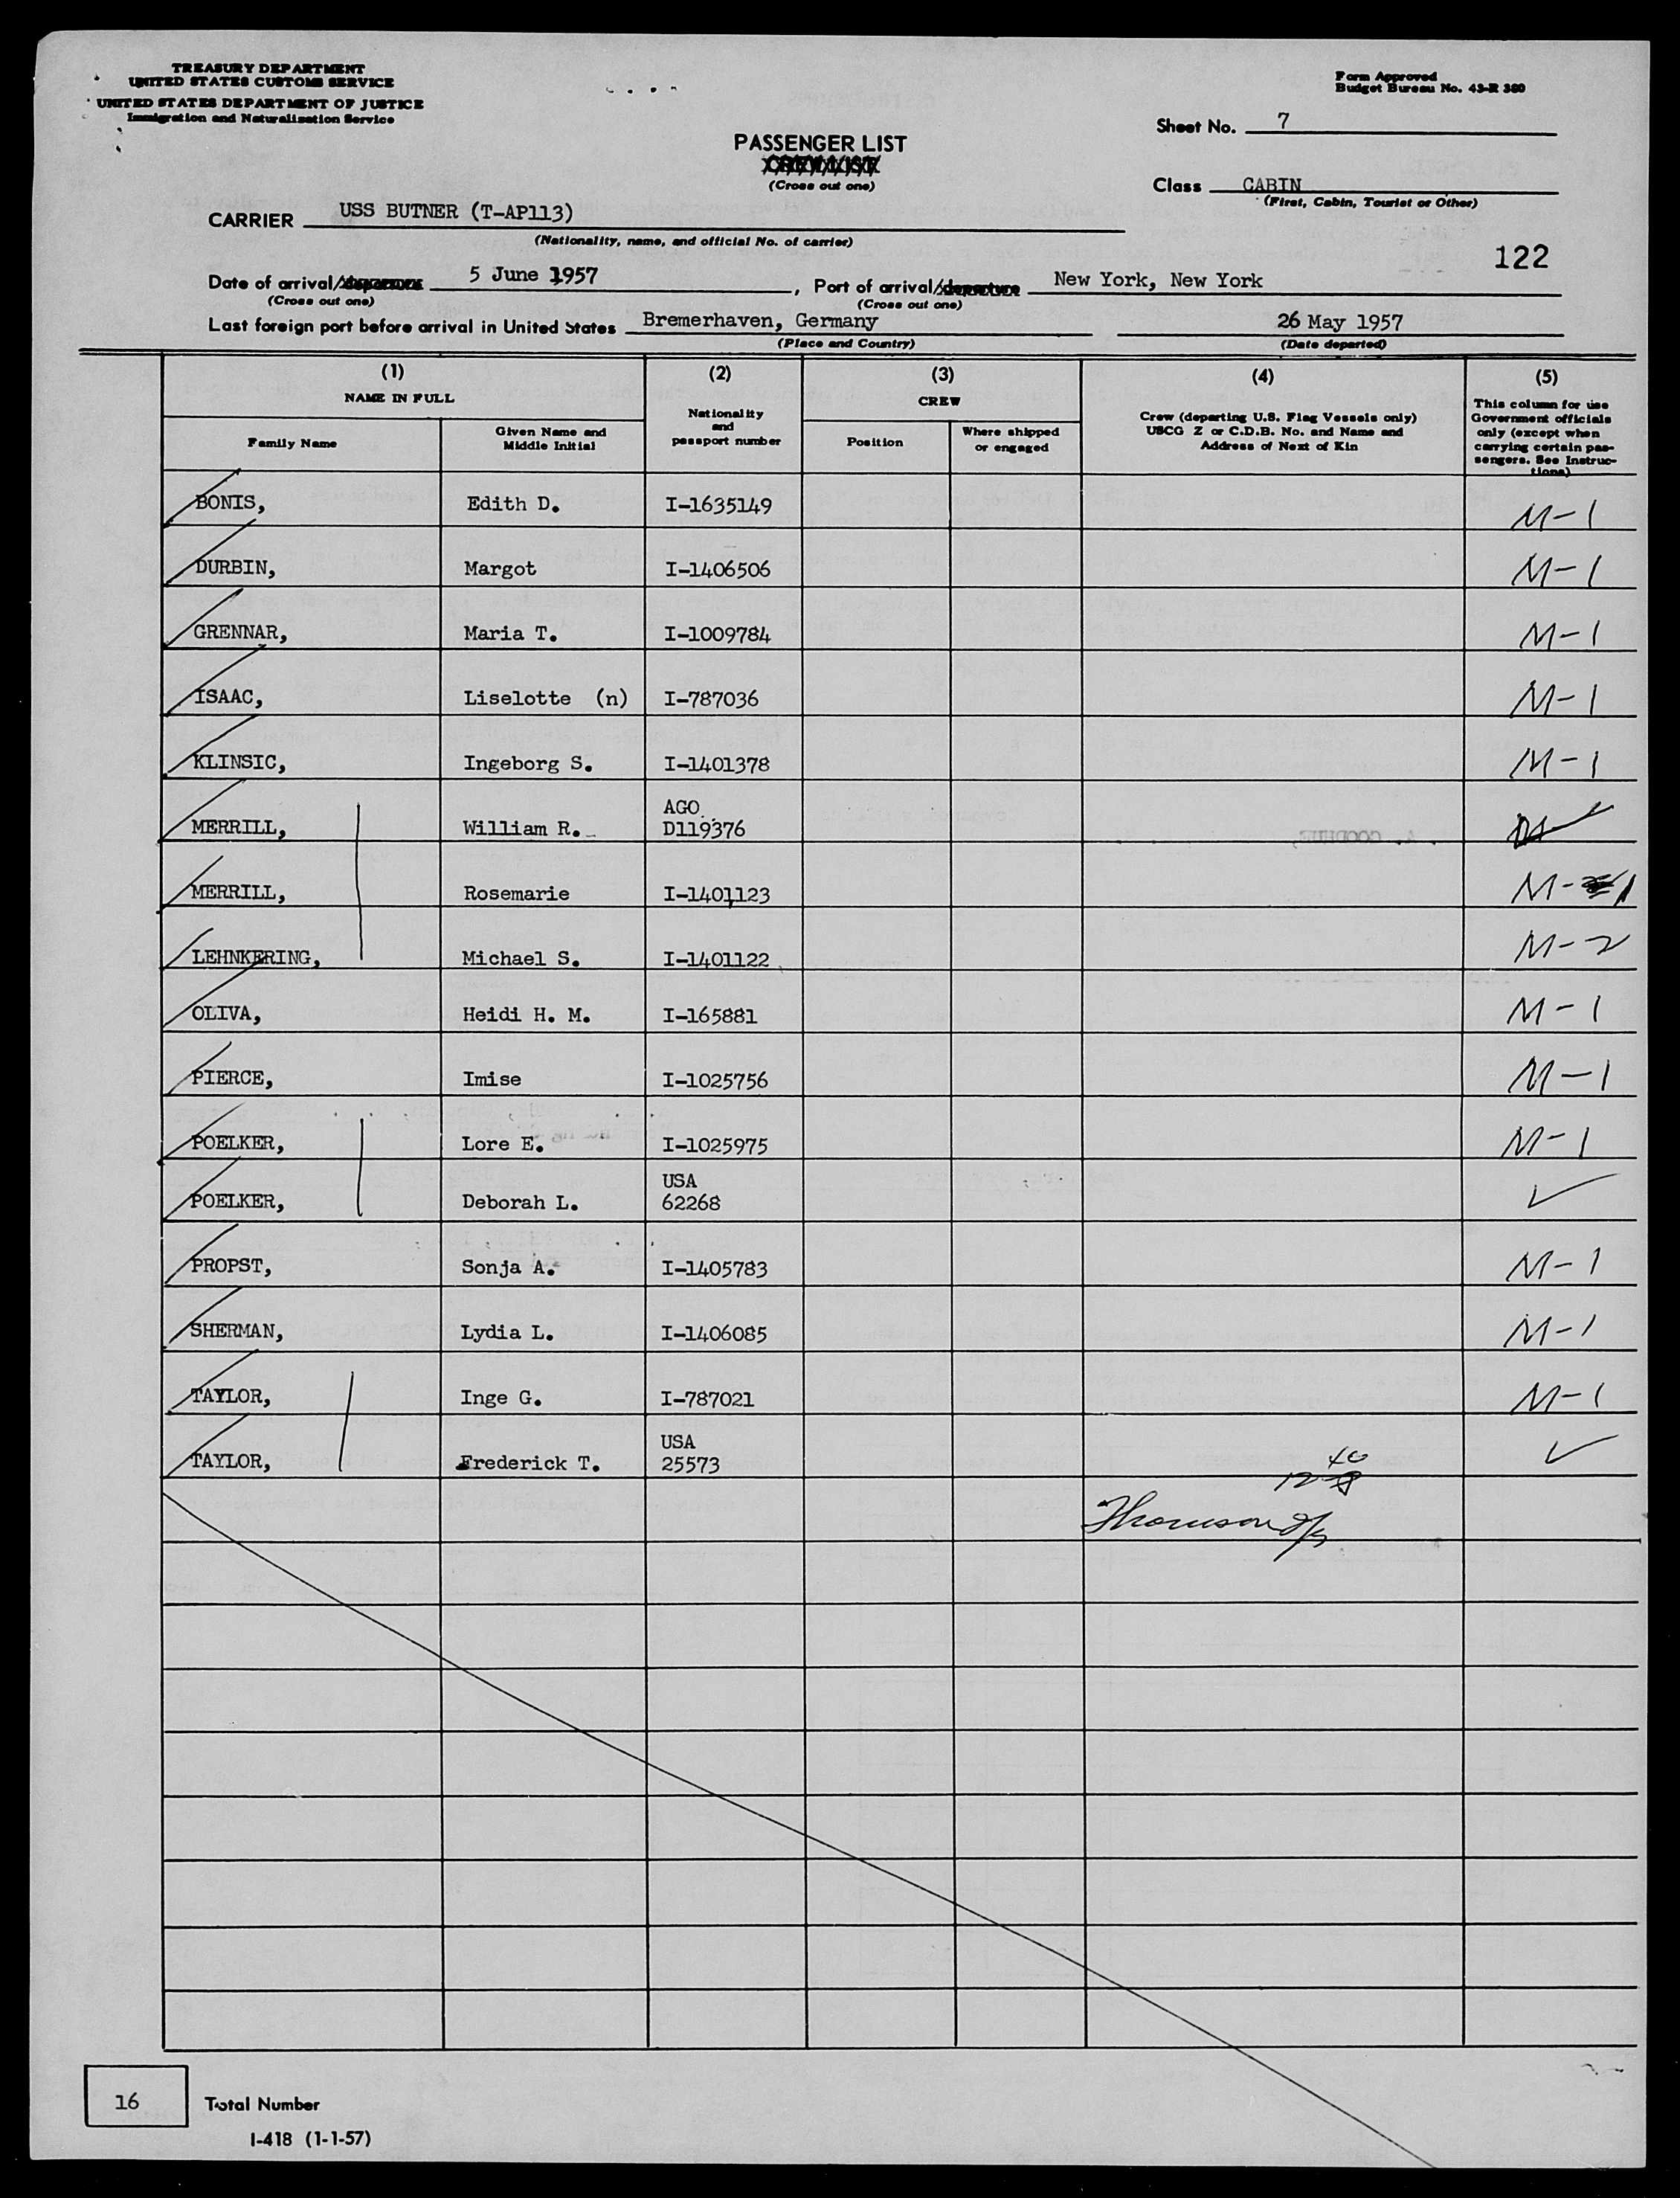 TREASURY DEPARTMENT
UNITED STATES CUSTOMS SERVICE
UNITED STATES DEPARTMENT OF JUSTICE
Immigration and Naturalization Service
Form Approved
Budget Bureau No. 43-R 380
Sheet No. 7
PASSENGER LIST
CREW LIST
(Cross out one)
Class CABIN
(First, Cabin, Tourist or Other)
CARRIER USS BUTNER (T-AP113)
(Nationality, name, and official No. of carrier)
122
Date of arrival/departure 5 June 1957, Port of arrival/departure New York, New York
(Cross out one) (Cross out one)
Last foreign port before arrival in United States Bremerhaven, Germany 26 May 1957
(Place and Country) (Date departed)
(1) (2) (3) (4) (5)
NAME IN FULL
Family Name
Given Name and Middle Initial
Nationality and passport number
CREW
Position
Where shipped or engaged
Crew (departing U.S. Flag Vessels only)
USCG Z or C.D.B. No. and Name and
Address of Next of Kin
This column for use
Government officials
only (except when
carrying certain pas-
sengers. See Instruc-
tions)
BONIS, Edith D. I-1635149 M-1
DURBIN, Margot I-1406506 M-1
GRENNAR, Maria T. I-1009784 M-1
ISAAC, Liselotte (n) I-787036 M-1
KLINSIC, Ingeborg S. I-1401378 M-1
AGO
MERRILL, William R. D119376
MERRILL, Rosemarie I-1401123 M-1
LEHNKERING, Michael S. I-1401122 M-2
OLIVA, Heidi H. M. I-165881 M-1
PIERCE, Imise I-1025756 M-1
POELKER, Lore E. I-1025975 M-1
USA
POELKER, Deborah L. 62268 ✓
PROPST, Sonja A. I-1405783 M-1
SHERMAN, Lydia L. I-1406085 M-1
TAYLOR, Inge G. I-787021 M-1
USA
TAYLOR, Frederick T. 25573 ✓
16 Total Number
I-418 (1-1-57)